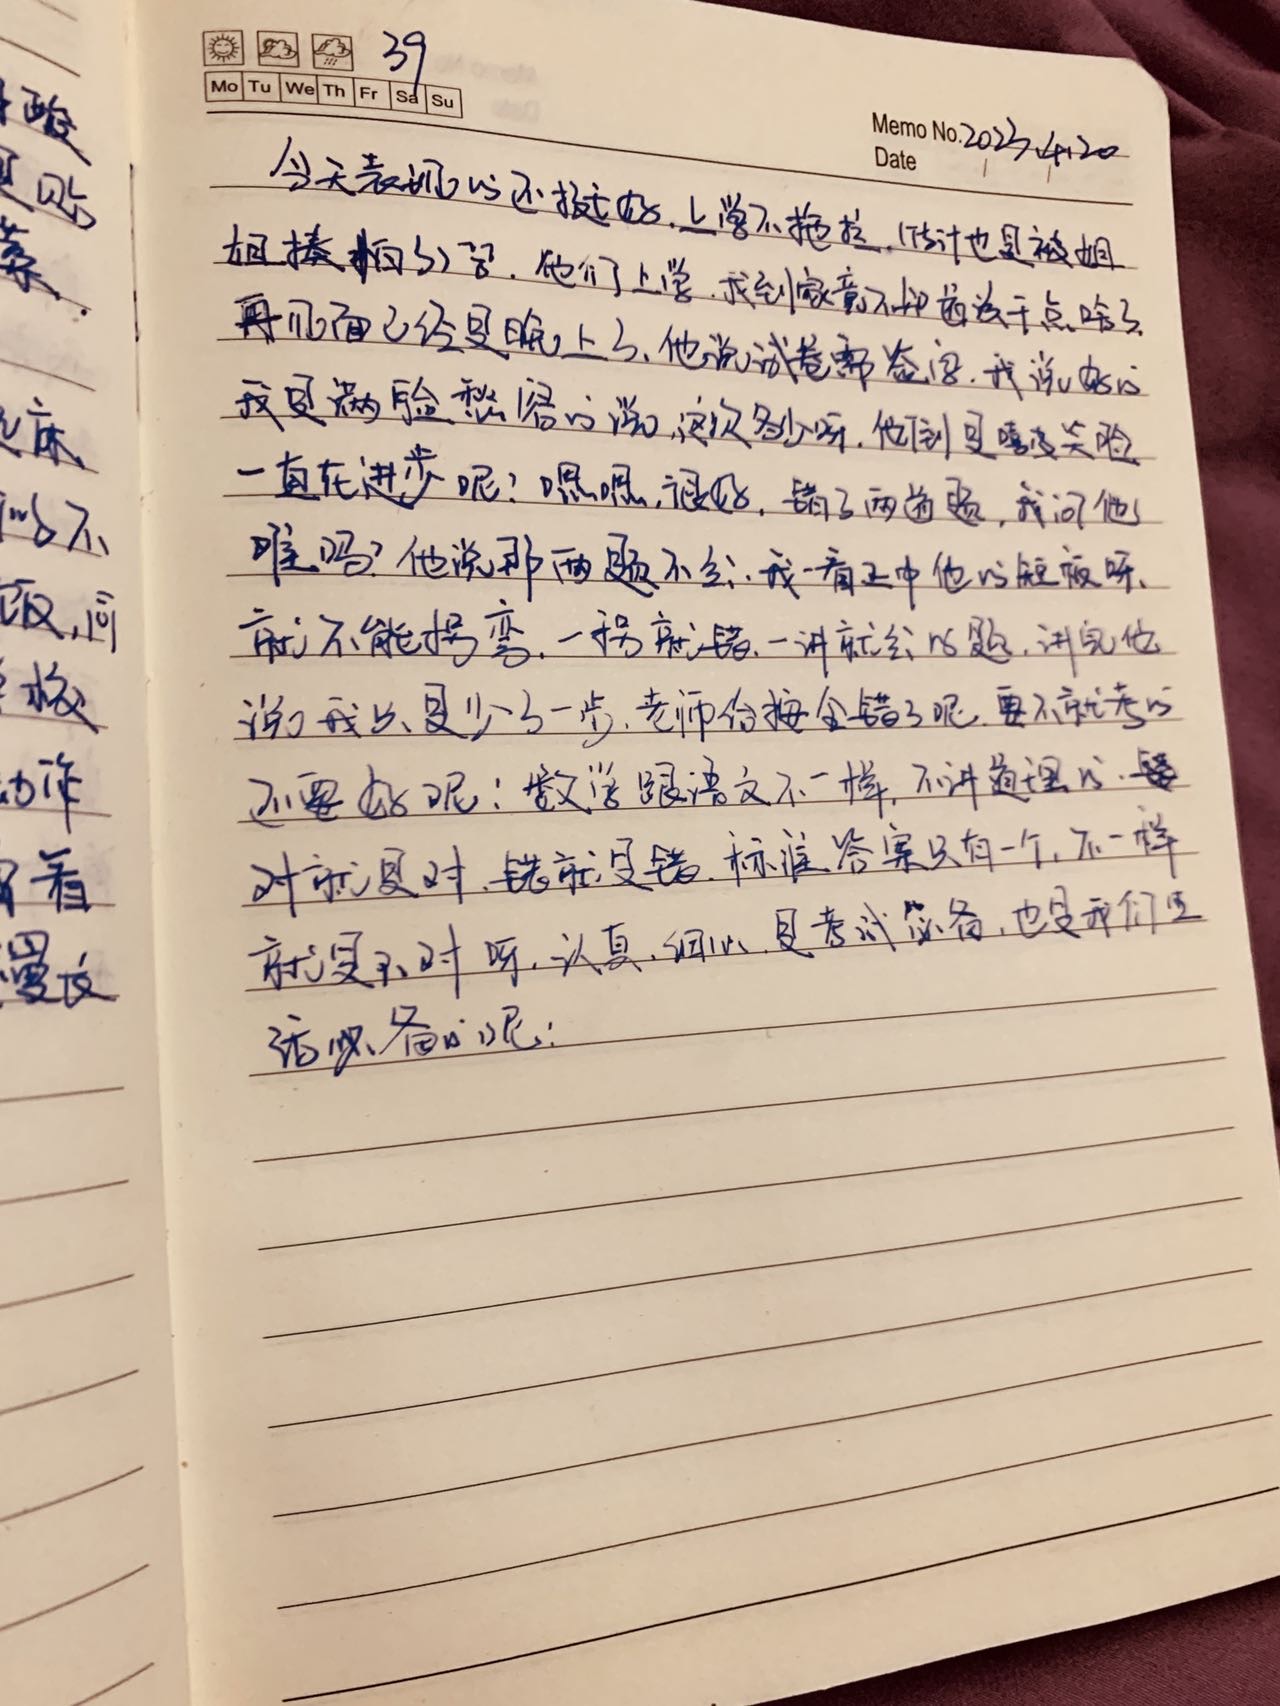 39
Mo Tu We Th Fr Sa Su
Memo No. 2023.4.20
Date
酸
是贴
菜.
床
不
饭,同
校
动作
看
漫这
今天表现的还挺好.上学不拖拉.估计也是被姐
姐揍怕了.他们上学.我到家竟不知道该干点啥了
再见面已经是晚上了.他说试卷需签字.我说好的
我是满脸愁容的说,这次多少呀.他倒是嘻皮笑脸
一直在进步呢?嗯嗯,很好,错了两道题,我问他
难吗?他说那两题不会.我一看正中他的短板呀.
就不能拐弯.一拐就错.一讲就会的题.讲完他
说我只是少了一步.老师给按全错了呢.要不就考的
还要好呢;数学跟语文不一样,不讲道理的.
对就是对.错就是错.标准答案只有一个.不一样
就是不对呀.认真.细心.是考试必备,也是我们生
活必备的呢;